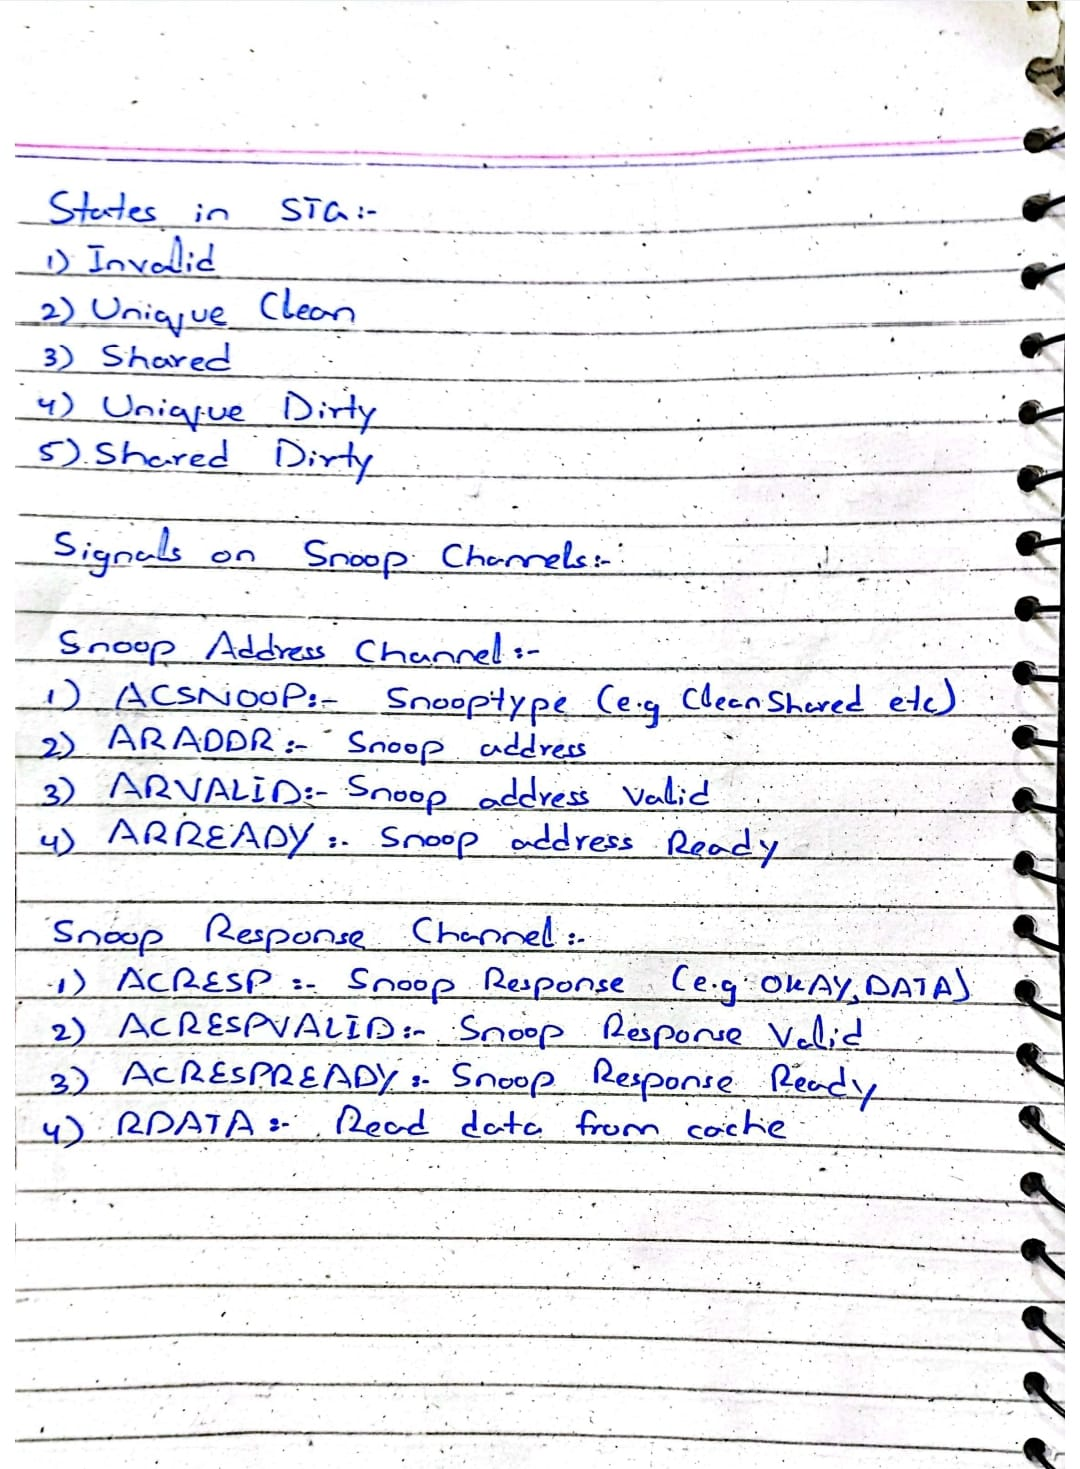 States in STG :-
1) Invalid
2) Unique Clean
3) Shared
4) Unique Dirty
5) Shared Dirty
Signals on Snoop Channels :-
Snoop Address Channel :-
1) ACSNOOP :- Snooptype (e.g CleanShared etc)
2) ARADDR :- Snoop address
3) ARVALID :- Snoop address valid
4) ARREADY :- Snoop address Ready
Snoop Response Channel :-
1) ACRESP :- Snoop Response (e.g OKAY, DATA)
2) ACRESPVALID :- Snoop Response Valid
3) ACRESPREADY :- Snoop Response Ready
4) RDATA :- Read data from cache